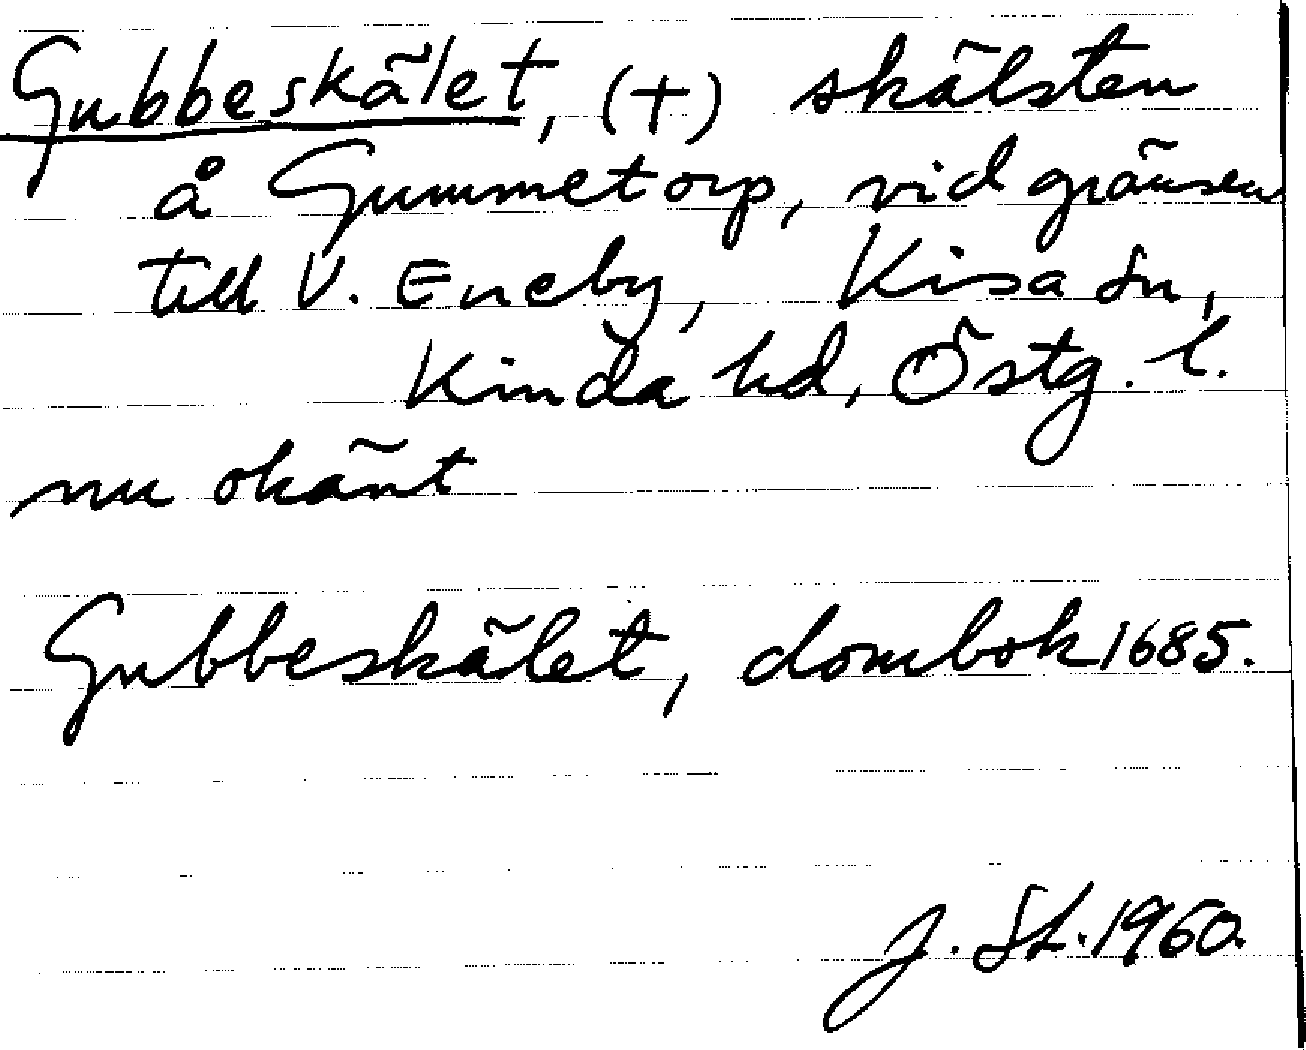 Gubbeskälet, (+) skälsten
å Gummetorp, vid gränsen
till V. Eneby, Kisa sn,
Kinda hd, Östg. l.
nu okänt
Gubbeskälet, dombok 1685.
J. St. 1960.